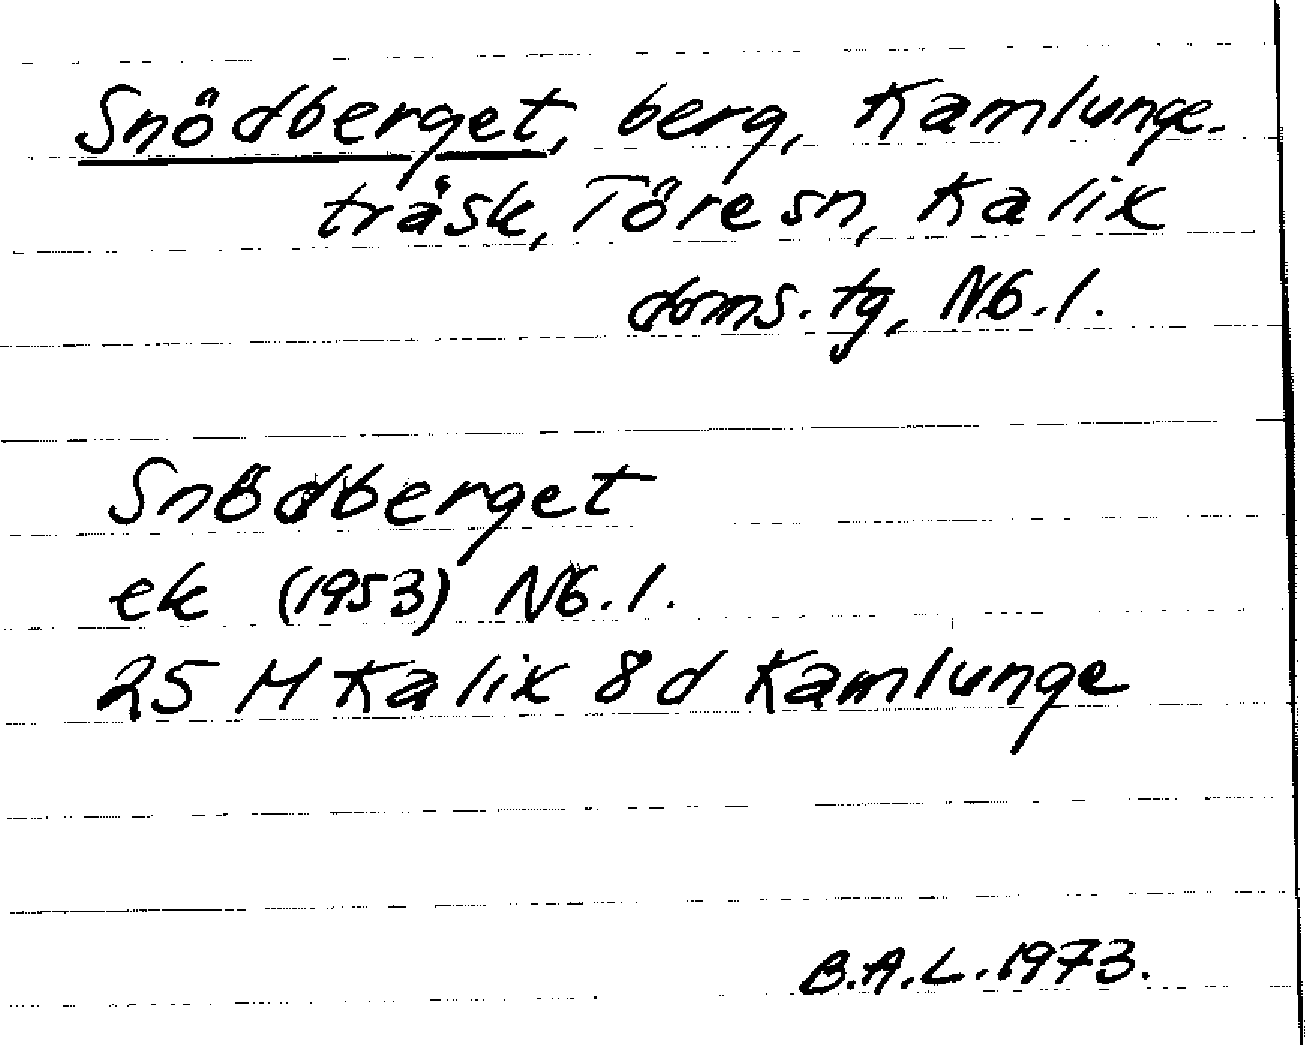 Snödberget, berg, Kamlunge-
träsk, Töre sn, Kalix
doms. tg, Nb.l.
Snödberget
ek (1953) Nb.l.
25 M Kalix 8 d Kamlunge
B.A.L. 1973.